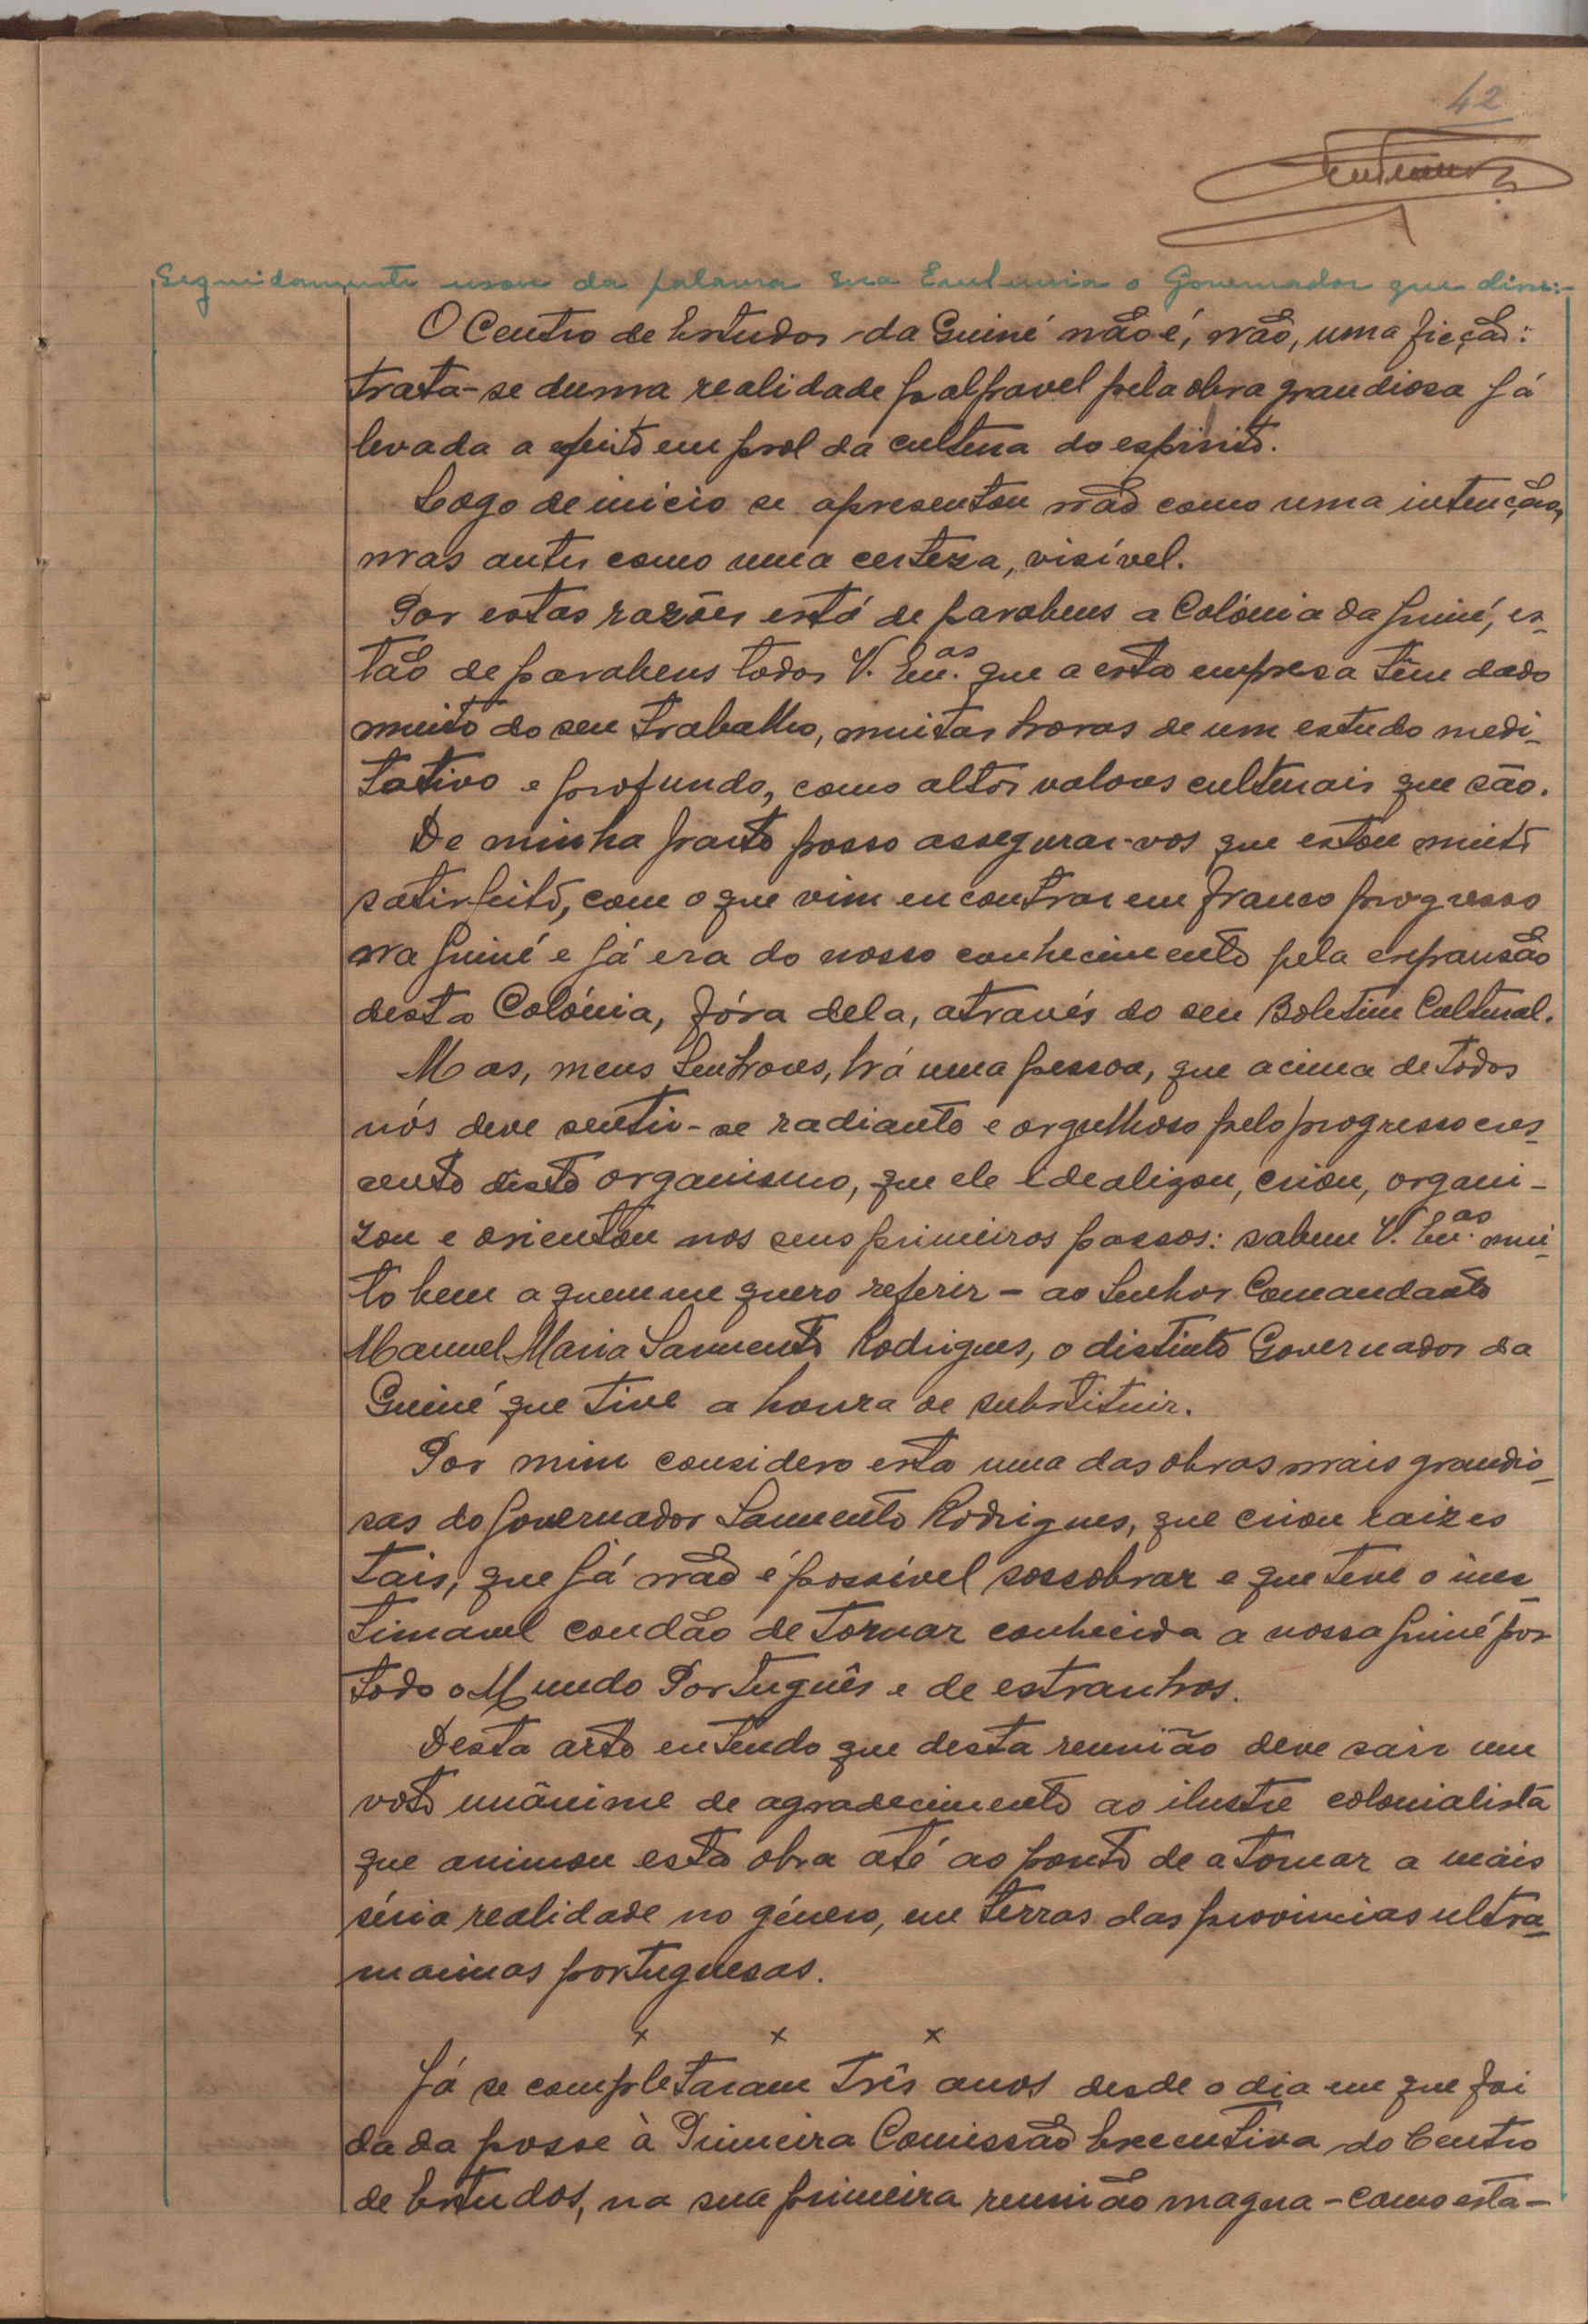 42
Seguidamente usou da palavra Sua Excelencia o Governador que disse:-
O Centro de Estudos da Guiné não é, não, uma ficção:
trata-se duma realidade palpavel pela obra grandiosa já
levada a efeito em prol da cultura do espirito.
Logo de inicio se apresentou não como uma intenção,
mas antes como uma certeza, visível.
Por estas razões está de parabens a Colónia da Guiné, es-
tão de parabens todos V. Ex.as que a esta empresa têm dado
muito do seu trabalho, muitas horas de um estudo medi-
tativo e profundo, como altos valores culturais que são.
De minha parte posso assegurar-vos que estou muito
satisfeito, com o que vim encontrar em franco progresso
na Guiné e já era do nosso conhecimento pela expansão
desta Colónia, fóra dela, através do seu Boletim Cultural.
Mas, meus Senhores, há uma pessoa, que acima de todos
nós deve sentir-se radiante e orgulhoso pelo progresso cres-
cente deste organismo, que ele idealizou, criou, organi-
zou e orientou nos seus primeiros passos: sabem V. Ex.as mui-
to bem a quem me quero referir - ao Senhor Comandante
Manuel Maria Sarmento Rodrigues, o distinto Governador da
Guiné que tive a honra de substituir.
Por mim considero esta uma das obras mais grandio-
sas do Governador Sarmento Rodrigues, que criou raizes
tais, que já não é possível sossobrar e que teve o ines-
timavel condão de tornar conhecida a nossa Guiné por
todo o Mundo Português e de estranhos.
Desta arte entendo que desta reunião deve sair um
voto unânime de agradecimento ao ilustre colonialista
que animou esta obra até ao ponto de a tornar a mais
séria realidade no género, em terras das provincias ultra-
marinas portuguesas.
x x x
Já se completaram três anos desde o dia em que foi
dada posse à Primeira Comissão Executiva do Centro
de Estudos, na sua primeira reunião magna - como esta -